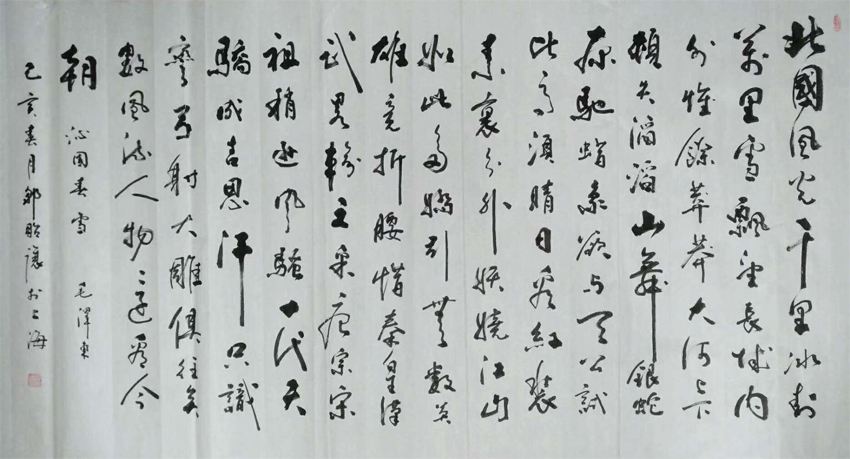 北國風光千里冰封
萬里雪飄望長城內
外惟餘莽莽大河上下
頓失滔滔山舞銀蛇
原馳蜡象欲与天公試
比高須晴日看紅裝
素裹分外妖嬈江山
如此多嬌引無數英
雄竞折腰惜秦皇漢
武略輸文采唐宗宋
祖稍遜風騷一代天
驕成吉思汗只識
彎弓射大雕俱往矣
數風流人物還看今
朝 沁園春雪 毛澤東
己亥春月邹昭讓於上海